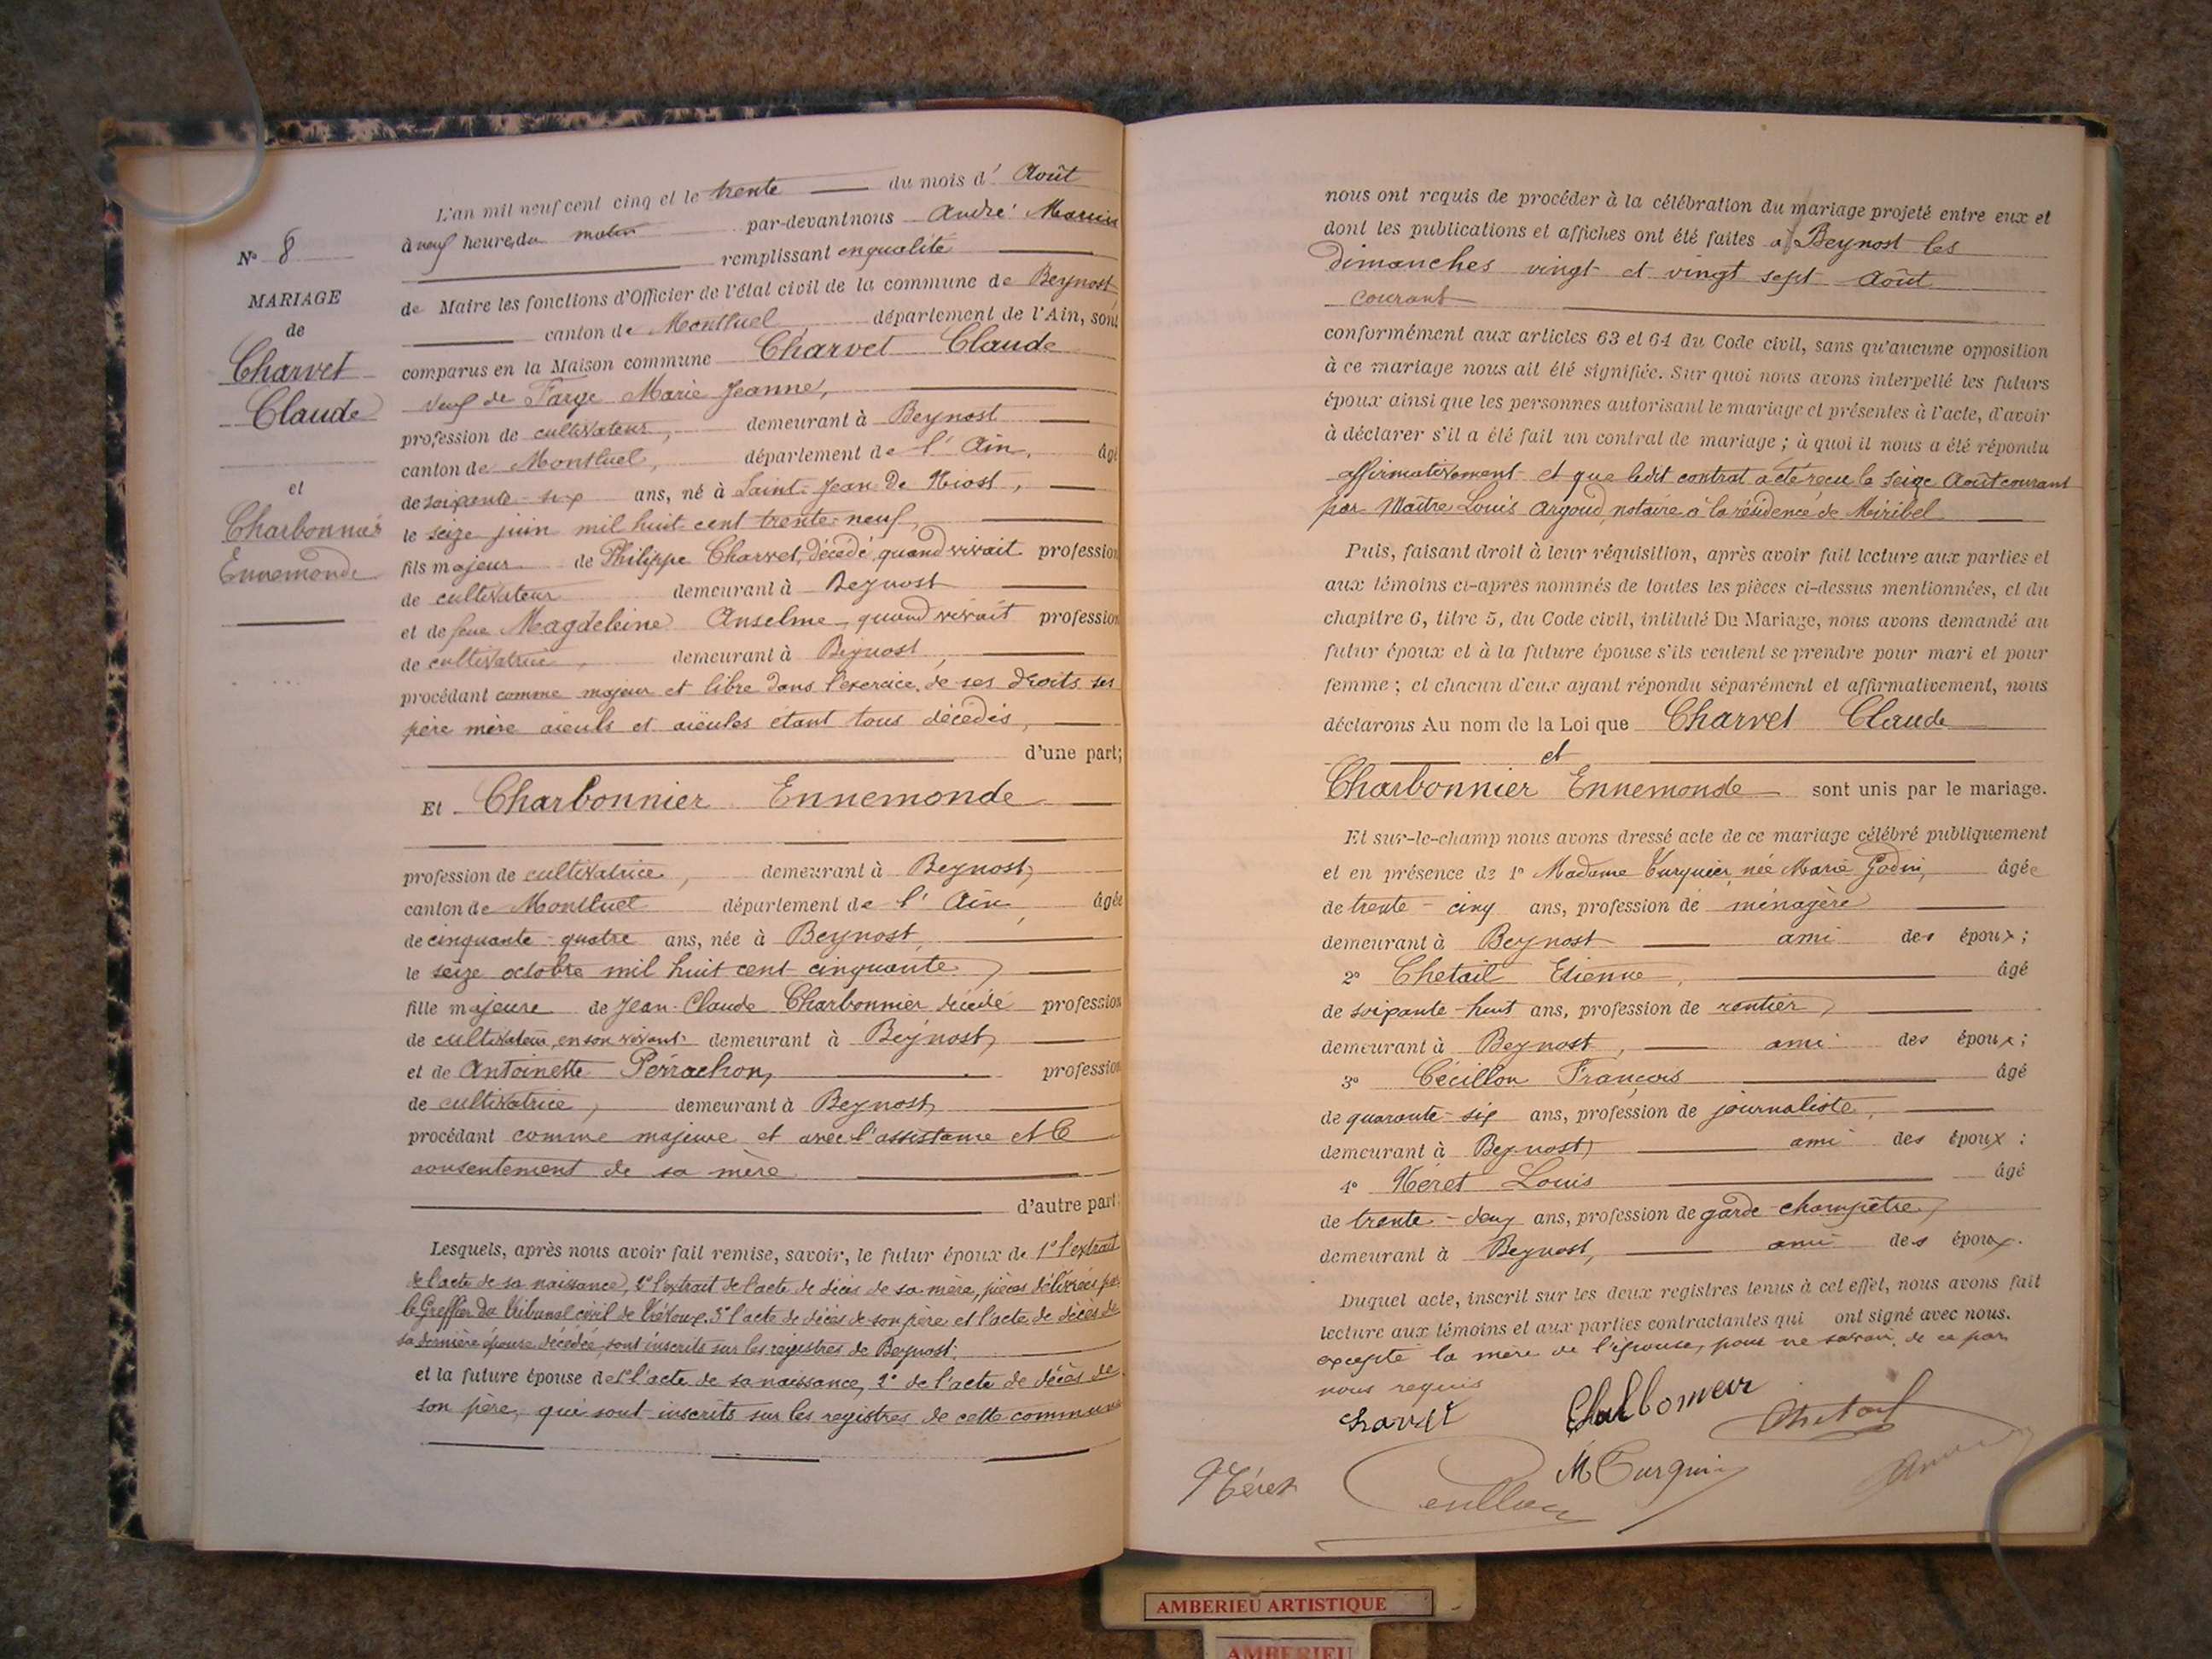 N° 8
MARIAGE
de
Charvet
Claude
et
Charbonnier
Ennemonde
L'an mil neuf cent cinq et le trente du mois d' Août
à neuf heures du matin par-devant nous André
remplissant en qualité
de Maire les fonctions d'Officier de l'état civil de la commune de Beynost,
canton de Montluel, département de l'Ain, sont
comparus en la Maison commune Charvet Claude
veuf de Farge Marie Jeanne,
profession de cultivateur, demeurant à Beynost
canton de Montluel, département de l' Ain, âgé
de soixante-six ans, né à Saint-Jean De Niost,
le seize juin mil huit cent trente-neuf,
fils majeur de Philippe Charvet, décédé, quand vivait profession
de cultivateur demeurant à Beynost
et de feue Magdeleine Anselme, quand vivait profession
de cultivatrice, demeurant à Beynost,
procédant comme majeur et libre dans l'exercice de ses droits ses
père mère aïeuls et aïeules étant tous décédés,
d'une part;
Et Charbonnier Ennemonde
profession de cultivatrice, demeurant à Beynost,
canton de Montluel département de l' Ain, âgée
de cinquante-quatre ans, née à Beynost,
le seize octobre mil huit cent cinquante,
fille majeure de Jean-Claude Charbonnier décédé profession
de cultivateur, en son vivant demeurant à Beynost,
et de Antoinette Perrachon, profession
de cultivatrice, demeurant à Beynost,
procédant comme majeure et avec l'assistance et le
consentement de sa mère
d'autre part;
Lesquels, après nous avoir fait remise, savoir, le futur époux de 1° l'extrait
de l'acte de sa naissance, 2° l'extrait de l'acte de décès de sa mère, pièces délivrées par
le Greffier du tribunal civil de Trévoux, 3° l'acte de décès de son père et l'acte de décès de
sa dernière épouse décédée, sont inscrits sur les registres de Beynost.
et la future épouse de 1° l'acte de sa naissance, 2° de l'acte de décès de
son père, qui sont inscrits sur les registres de cette commune
nous ont requis de procéder à la célébration du mariage projeté entre eux et
dont les publications et affiches ont été faites à Beynost les
dimanches vingt et vingt sept Août
courant
conformément aux articles 63 et 64 du Code civil, sans qu'aucune opposition
à ce mariage nous ait été signifiée. Sur quoi nous avons interpellé les futurs
époux ainsi que les personnes autorisant le mariage et présentes à l'acte, d'avoir
à déclarer s'il a été fait un contrat de mariage ; à quoi il nous a été répondu
affirmativement et que ledit contrat a été reçu le seize Août courant
par Maître Louis Argoud, notaire à la résidence de Miribel
Puis, faisant droit à leur réquisition, après avoir fait lecture aux parties et
aux témoins ci-après nommés de toutes les pièces ci-dessus mentionnées, et du
chapitre 6, titre 5, du Code civil, intitulé Du Mariage, nous avons demandé au
futur époux et à la future épouse s'ils veulent se prendre pour mari et pour
femme ; et chacun d'eux ayant répondu séparément et affirmativement, nous
déclarons Au nom de la Loi que Charvet Claude
et
Charbonnier Ennemonde sont unis par le mariage.
Et sur-le-champ nous avons dressé acte de ce mariage célébré publiquement
et en présence de 1° Madame née Marie Godin, âgée
de trente-cinq ans, profession de ménagère
demeurant à Beynost ami des époux ;
2° Chetail Etienne, âgé
de soixante-huit ans, profession de rentier,
demeurant à Beynost, ami des époux ;
3° Cécillon François âgé
de quarante-six ans, profession de journaliste,
demeurant à Beynost, ami des époux ;
4° Néret Louis âgé
de trente-deux ans, profession de garde-champêtre,
demeurant à Beynost, ami des époux.
Duquel acte, inscrit sur les deux registres tenus à cet effet, nous avons fait
lecture aux témoins et aux parties contractantes qui ont signé avec nous.
excepté la mère de l'épouse, pour ne savoir, de ce par
nous requis
Charvet
Chetail
Néret
AMBERIEU ARTISTIQUE
AMBERIEU